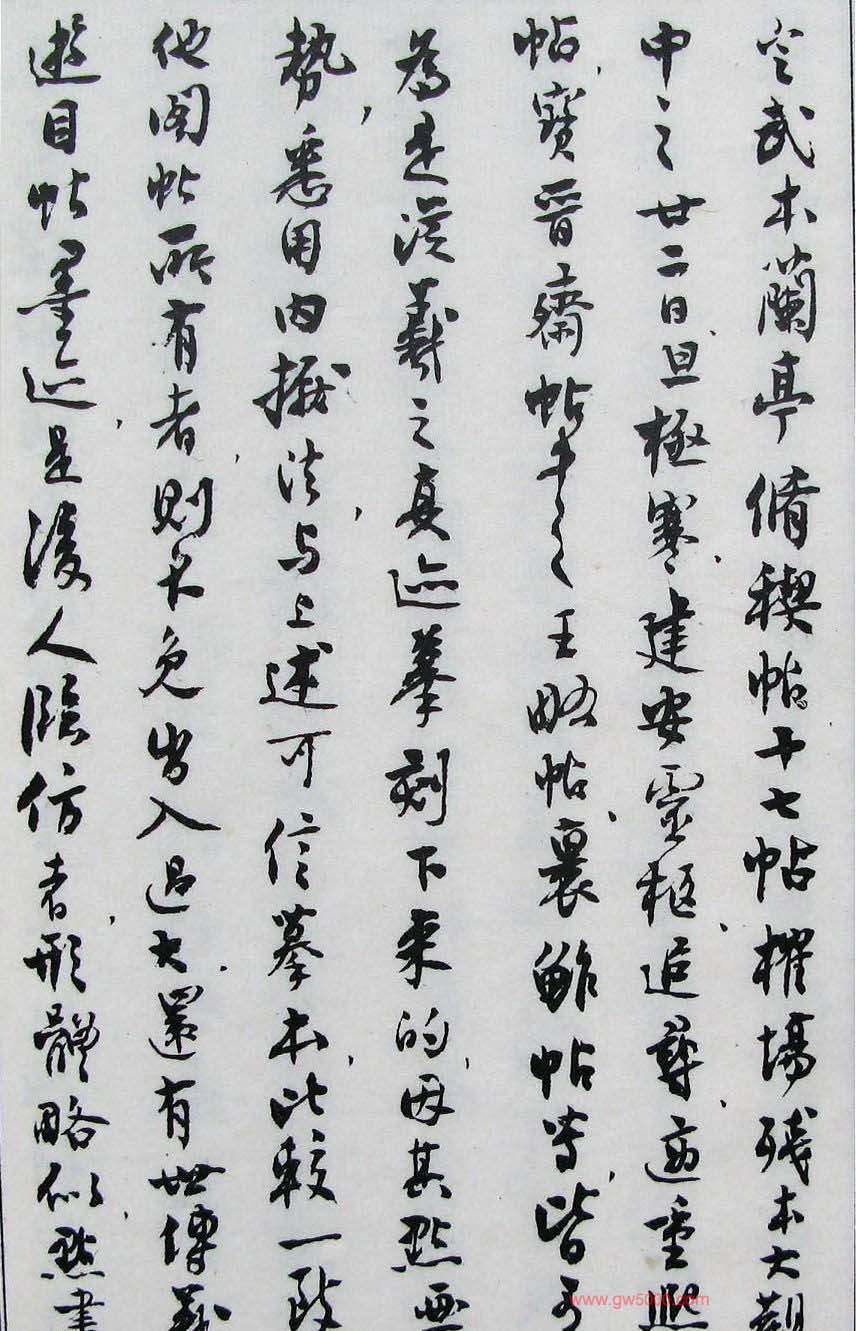 定武本蘭亭脩稧帖十七帖榷場殘本大觀
中之廿二日旦極寒建安靈柩追尋逾重熙
帖寶晉齋帖中之王略帖裹鮓帖等皆可
為是從羲之真迹摹刻下來的因其點畫
勢悉用內擫法与上述可信摹本比較一致
他閣帖所有者則不免出入過大還有世傳羲
遊目帖墨迹是後人臨仿者形體略似點畫
www.gw5000.com